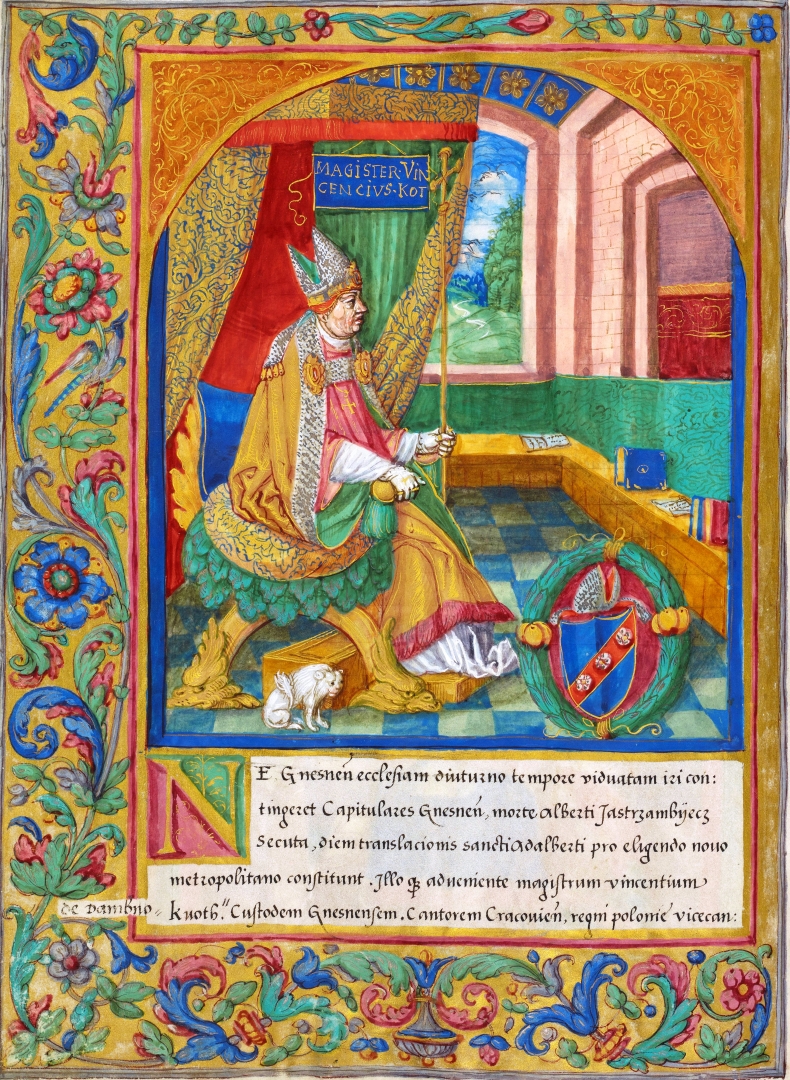 MAGISTER·VIN
CENCIVS·KOT
NE Gnesnen̄ ecclesiam diuturno tempore viduatam iri con:
tingeret Capitulares Gnesnen̄, morte Alberti Jastrzambyecz
Secuta, diem translacionis sancti Adalberti pro eligendo nouo
metropolitano constituunt. Illo qꝫ adueniente magistrum vincentium
de Dambno
kvoth. Custodem Gnesnensem. Cantorem Cracovien̄, regni polonie vicecan: